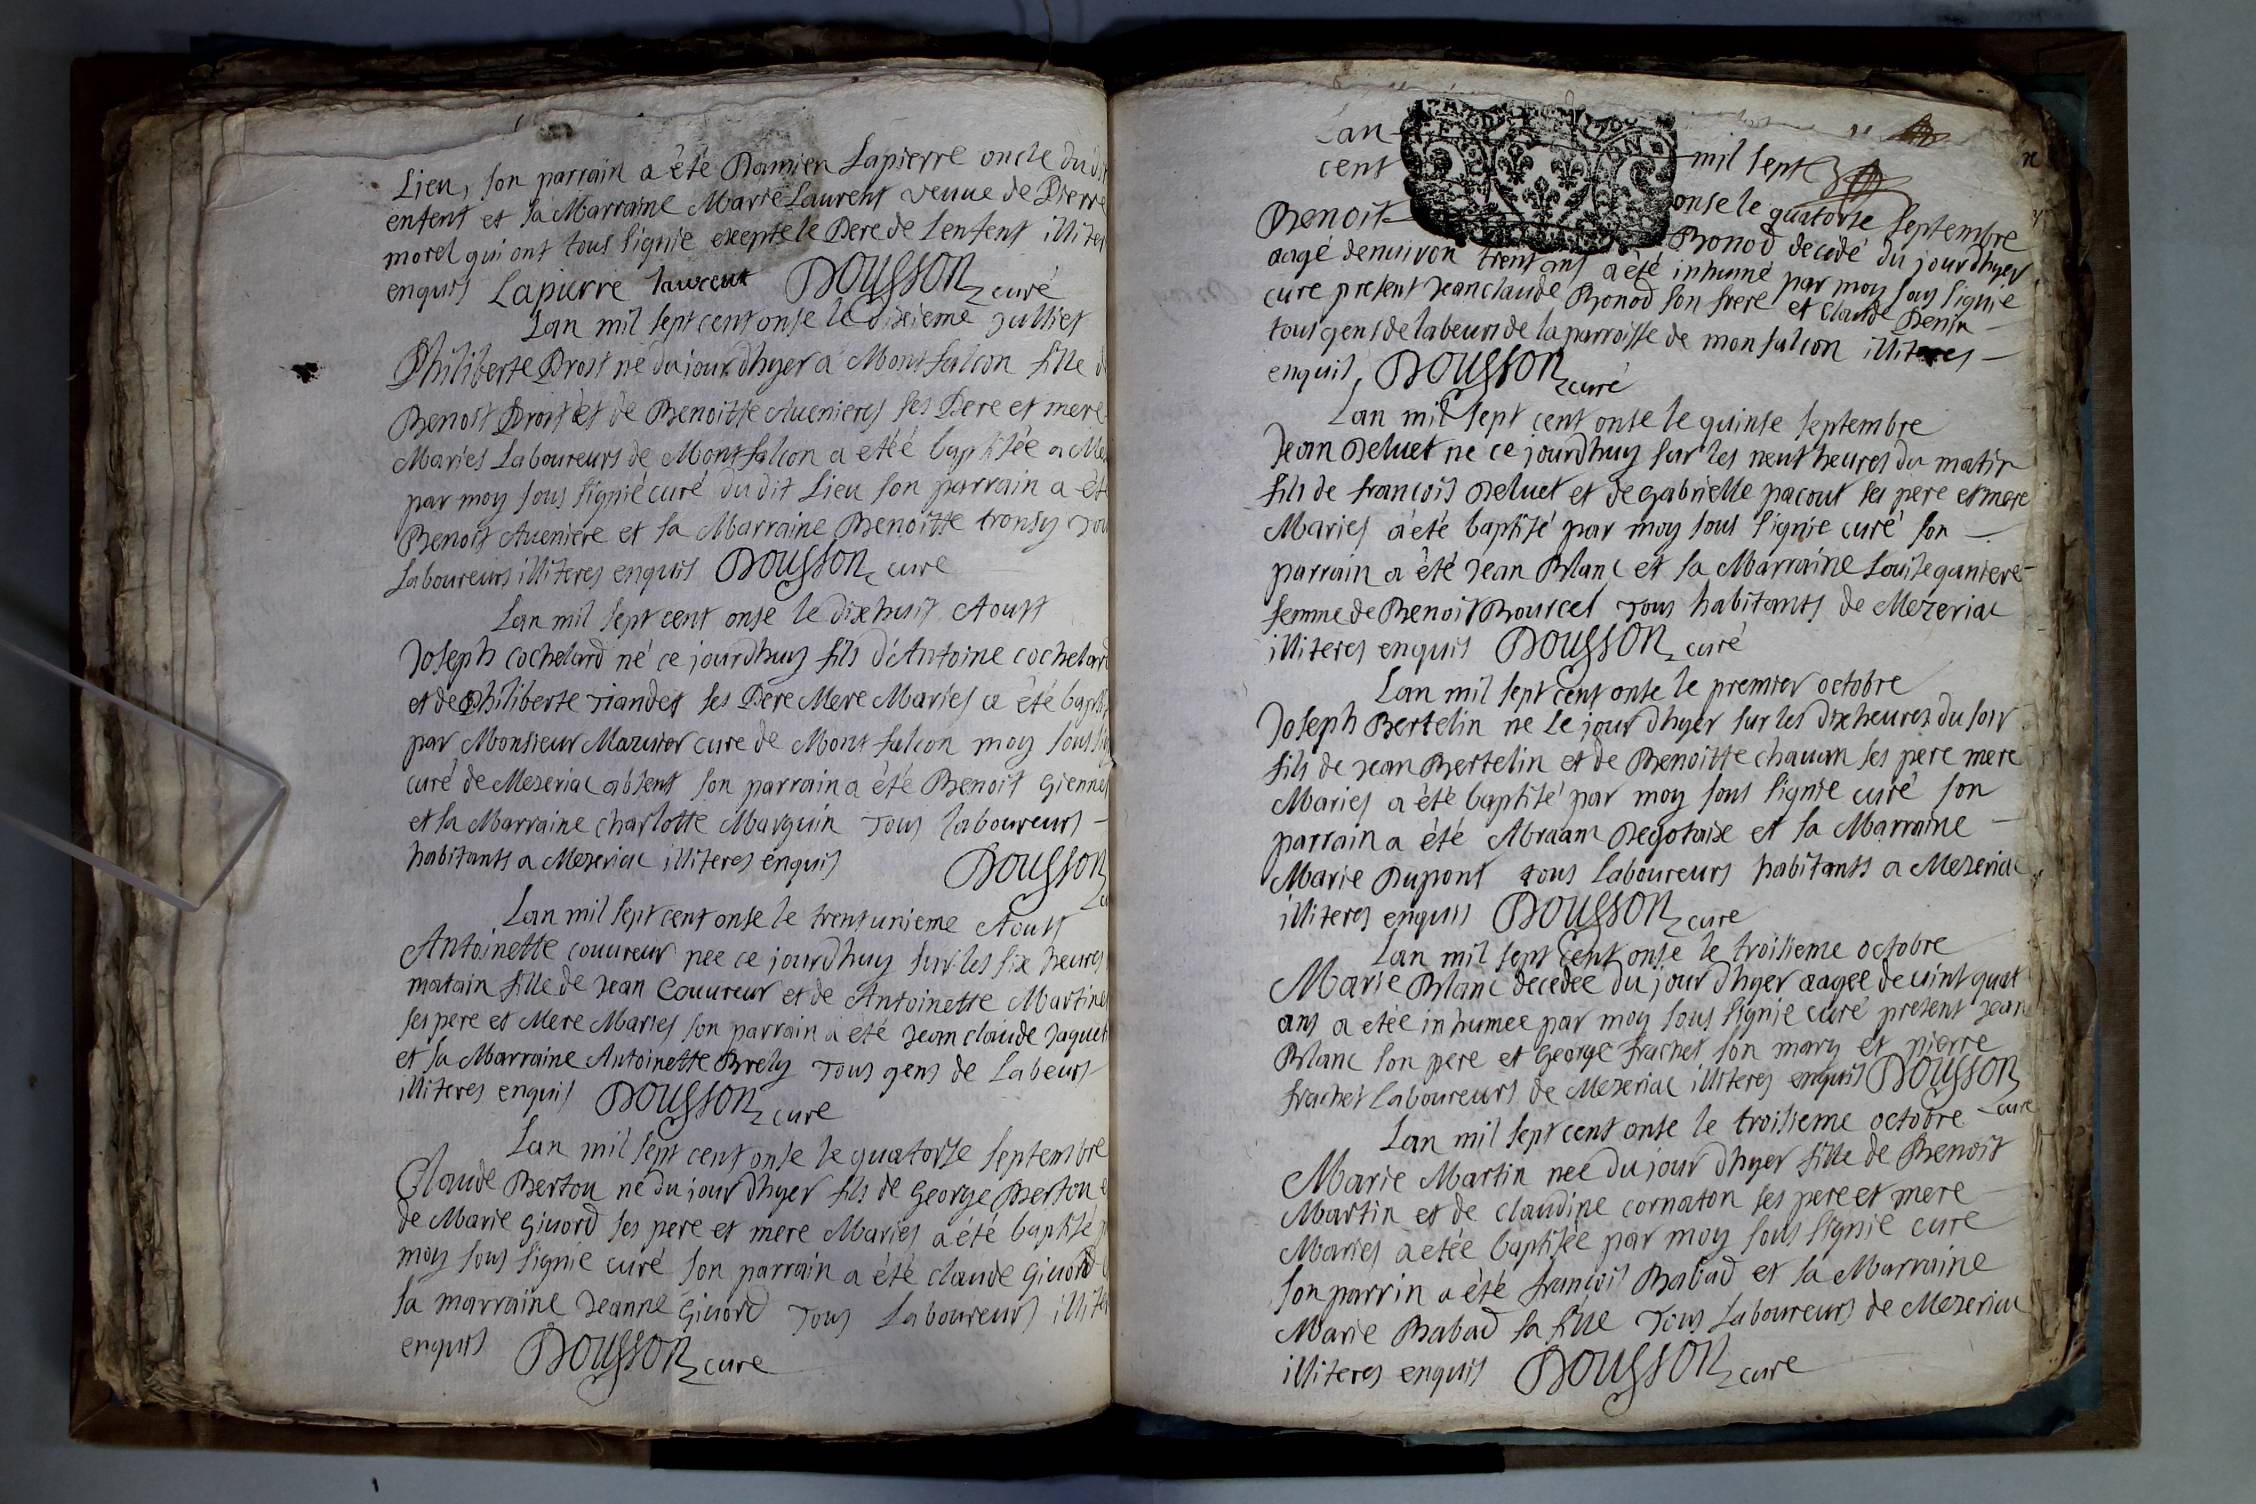 Lieu, son parrain a été Damien Lapierre oncle du dit
enfent et sa Marraine Marie Laurent veuue de Pierre
morel qui ont tous signie exepte le Pere de lenfent illiter
enquis Lapierre laurent Dousson curé
Lan mil sept cent onse le dixieme Julliet
Philiberte Drost ne du jour dhyer a Montfalcon fille d
Benoit Droit et de Benoitte Auenieres ses Pere et mere
Maries Laboureurs de Montfalcon a etéé baptisée a Me
par moy sous signié curé du dit Lieu son parrain a été
Benoit Aueniere et sa Marraine Benoitte tronsy Tou
Laboureurs illiteres enquis Dousson cure
Lan mil sept cent onse le dixhuit Aoust
Joseph cochelard né ce jourdhuy fils d'Antoine cochelard
et de Philiberte riandet ses Pere Mere Maries a été bapti
par Monsieur Mazuior cure de Montfalcon moy sous sig
curé de Meseriac absent son parrain a été Benoit Gienne
et sa Marraine charlotte Marguin Tous laboureurs
habitants a Mezeriac illiteres enquis Dousson
cu
Lan mil sept cent onse le trentunieme Aoust
Antoinette couureur nee ce jourdhuy sur les six heures
matain fille de Jean Couureur et de Antoinette Martine
ses pere et Mere Maries son parrain a été Jean claude Jaquet
et sa Marraine Antoinette Brely Tous gens de Labeurs
illiteres enquis Dousson cure
Lan mil sept cent onse le quatorse septembre
Claude Bertou né du jour dhyer fils de George Bertou e
de Marie Giuord ses pere et mere Maries a été baptisé p
moy sous signie curé son parrain a été claude Giuord
sa marraine Jeanne Giuord Tous Laboureurs illiter
enquis Dousson cure
Lan mil sept
cent onse le quatorse septembre
Benoit Bonod decedé du jour dhyer
aagé denuiron trent ans a été inhumé par moy sous signie
cure present Jean claude Bonod son frere et Claude
tous gens de labeurs de la parroisse de monfalcon illiteres
enquis, Dousson curé
Lan mil sept cent onse le quinse septembre
Jean Deluet ne ce jourdhuy sur les neuf heures du matin
fils de francois Deluet et de Gabrielle pacout ses pere et mere
Maries a été baptisé par moy sous signie curé son
parrain a été Jean Blanc et sa Marraine Louise ganiere
femme de Benoit Bourcel Tous habitants de Mezeriac
illiteres enquis Dousson curé
Lan mil sept cent onse le premier octobre
Joseph Bertelin ne le jour dhyer sur les dix heures du soir
fils de Jean Bertelin et de Benoitte chauan ses pere mere
Maries a été baptisé par moy sous signie curé son
parrain a été Abraam Degotaise et sa Marraine
Marie Dupont tous laboureurs habitants a Mezeriac
illiteres enquis Dousson cure
Lan mil sept cent onse le troisieme octobre
Marie Blanc decedée du jour dhyer aagée de uint quat
ans a etée inhumee par moy sous signie curé present Jean
Blanc son pere et George frachet son mary et pierre
frachet laboureurs de Mezeriac illiteres enquis Dousson
cure
Lan mil sept cent onse le troisieme octobre
Marie Martin nee du jour dhyer fille de Benoit
Martin et de claudine cornaton ses pere et mere
Maries a etée baptisée par moy sous signie cure
son parrin a été francois Rabad et sa Marraine
Marie Rabad sa fille Tous Laboureurs de Mezeriac
illiteres enquis Dousson cure